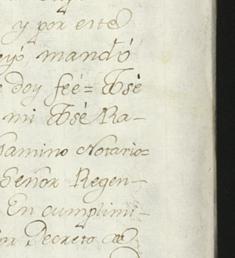 y por este
eyó mandó
doy feé = Jsè
mi Jsè Ra-
Camino Notario=
Señor Regen-
En cumplimi-
or Decreto de